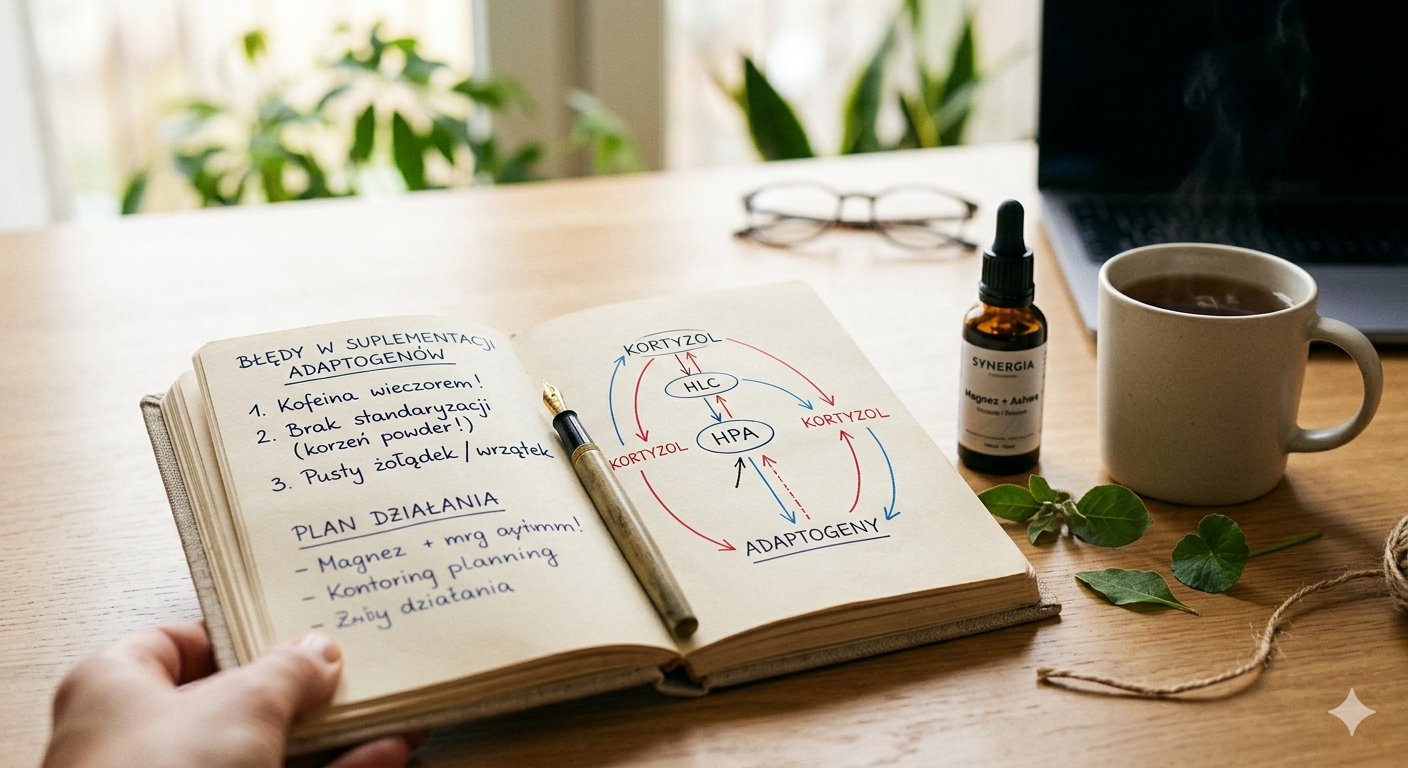 BŁĘDY W SUPLEMENTACJI
ADAPTOGENÓW
1. Kofeina wieczorem!
2. Brak standaryzacji
(korzeń powder!)
3. Pusty żołądek / wrzątek
PLAN DZIAŁANIA
- Magnez + mrg
- Kontoring planning
- działania
KORTYZOL
HLC
KORTYZOL
HPA
KORTYZOL
ADAPTOGENY
SYNERGIA
Magnez + Ashwa